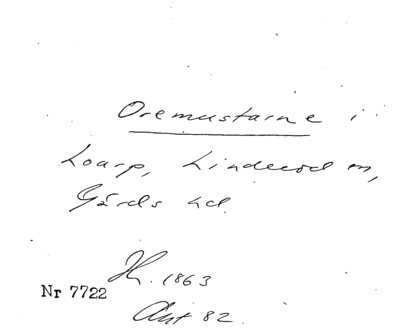 Oremustarne i
Loarp, Linderöd sn,
Gärds hd.
H. 1863
Nr 7722
Ant 82.